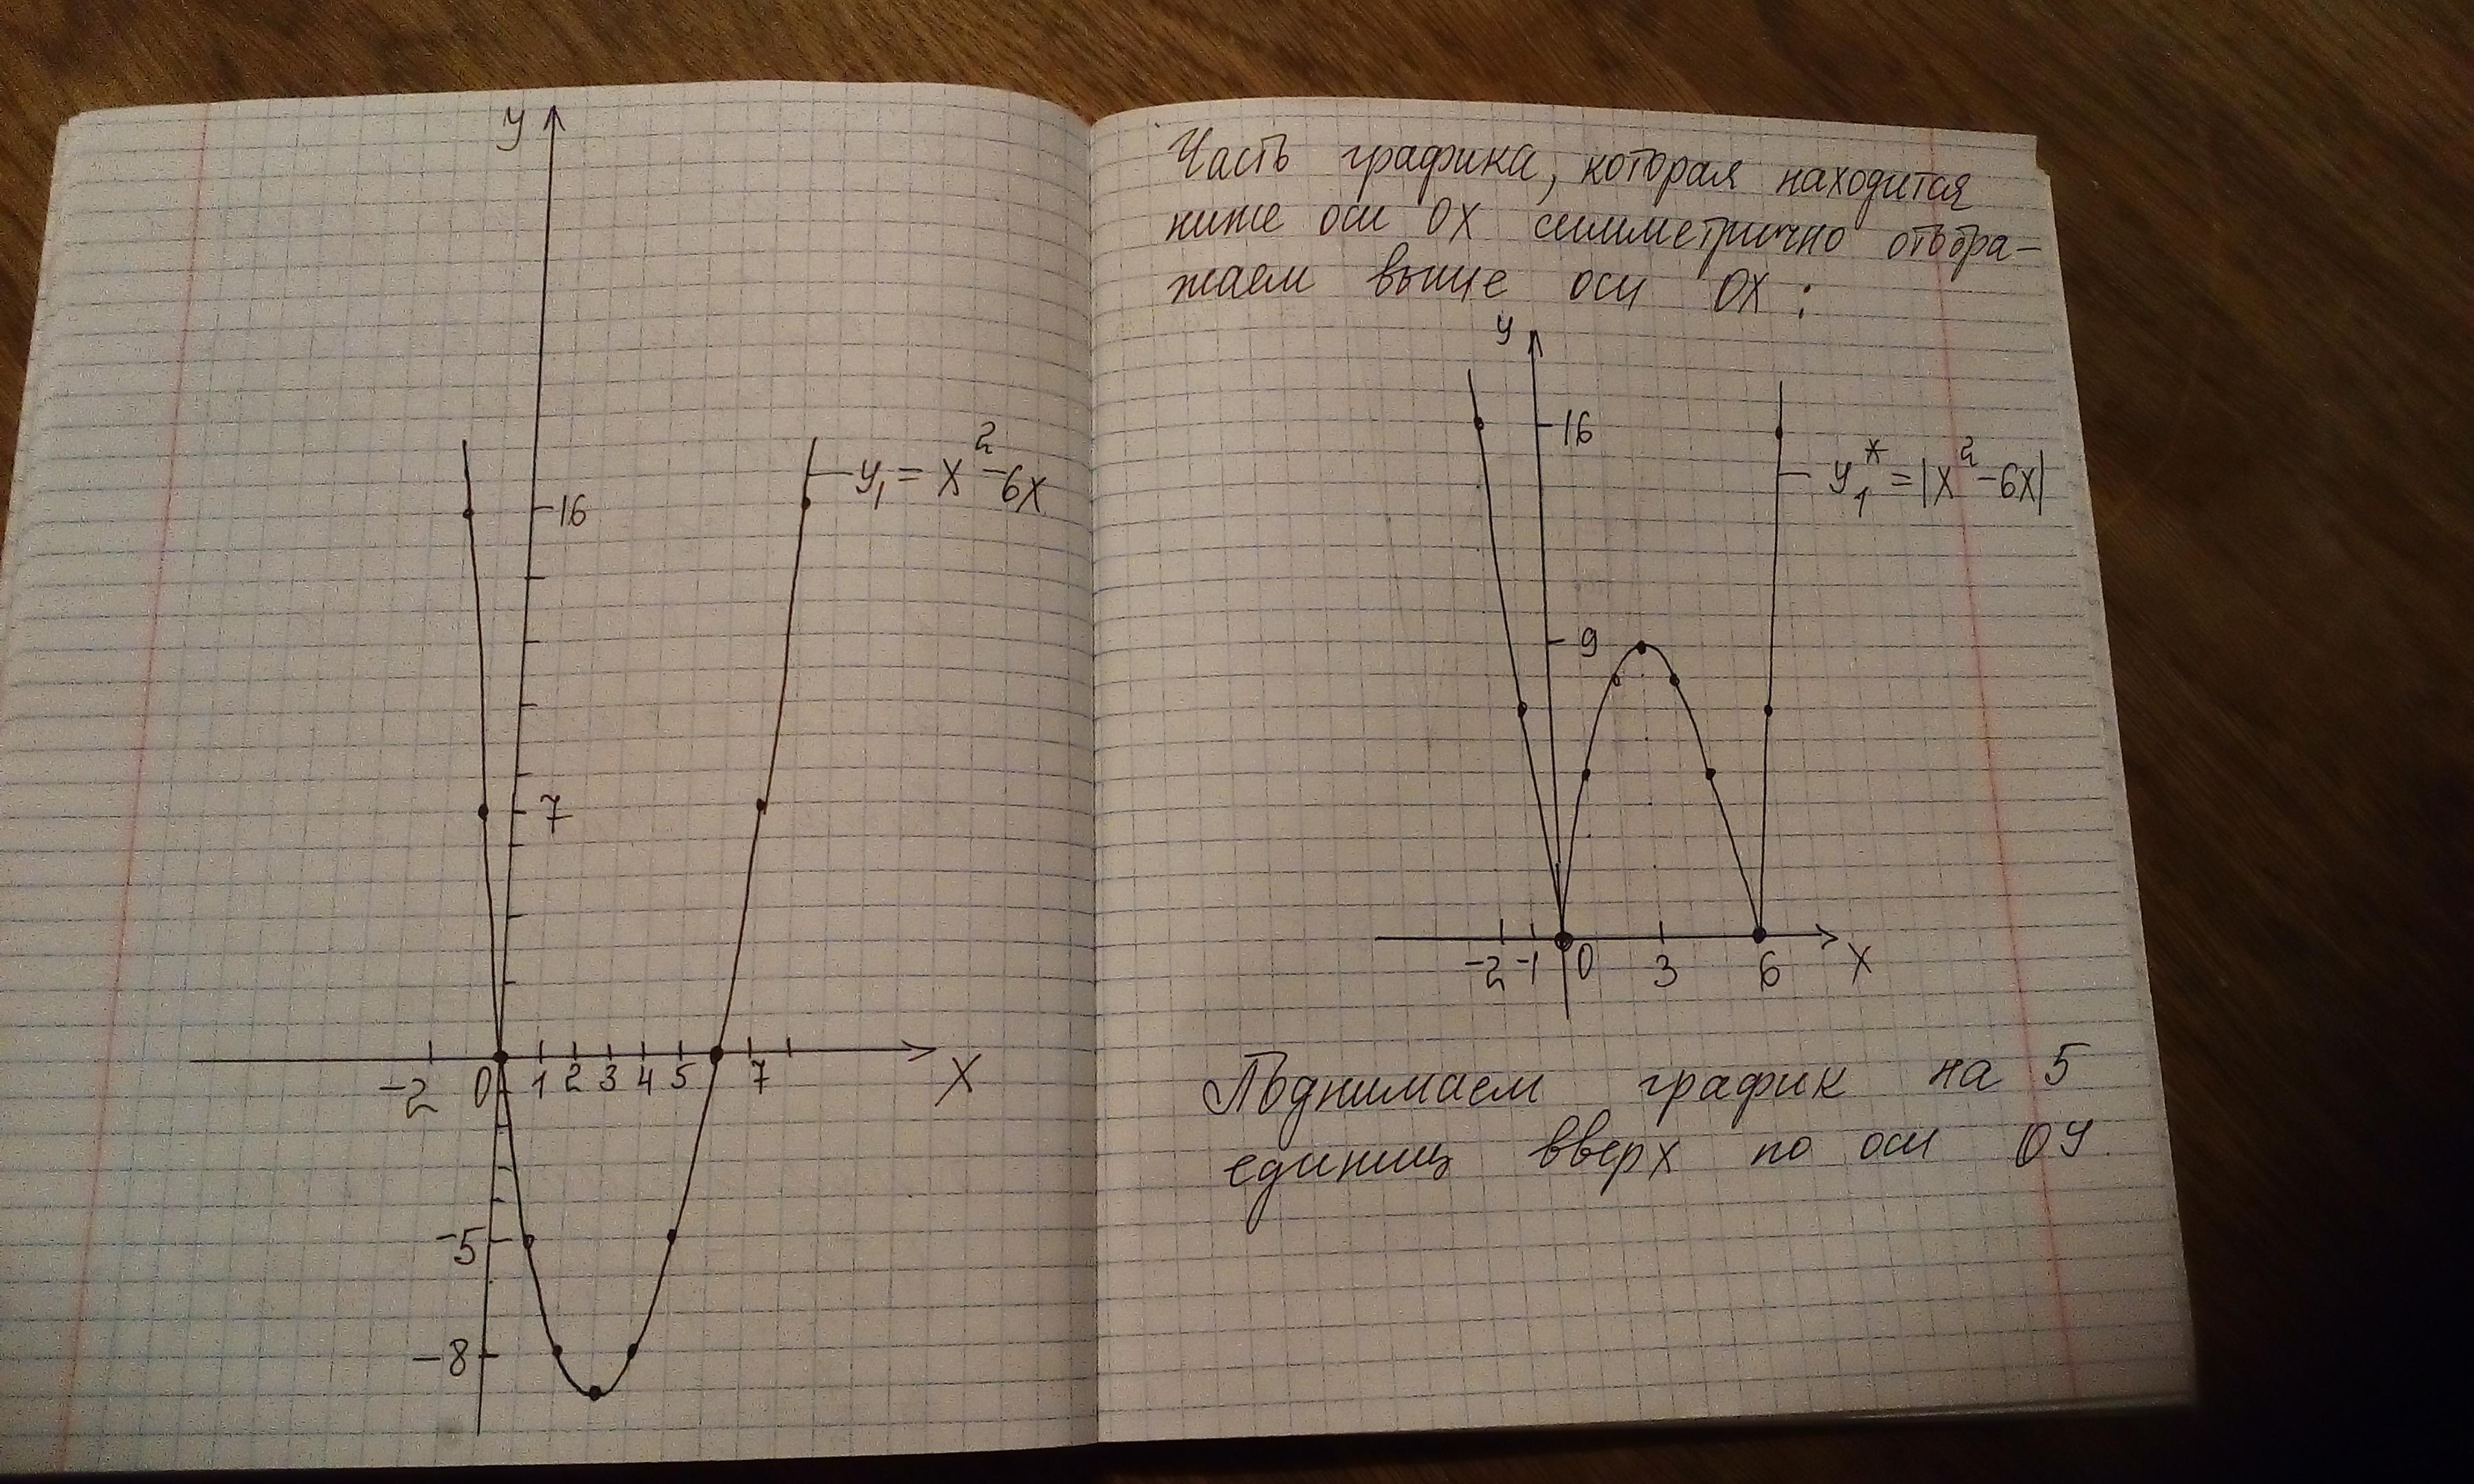 y
y₁ = x² - 6x
16
7
-2 0 1 2 3 4 5 7 x
-5
-8
Часть графика, которая находится
ниже оси OX симметрично отобра-
жаем выше оси OX:
y
16
y₁* = |x² - 6x|
9
-2 -1 0 3 6 x
Поднимаем график на 5
единиц вверх по оси OY.